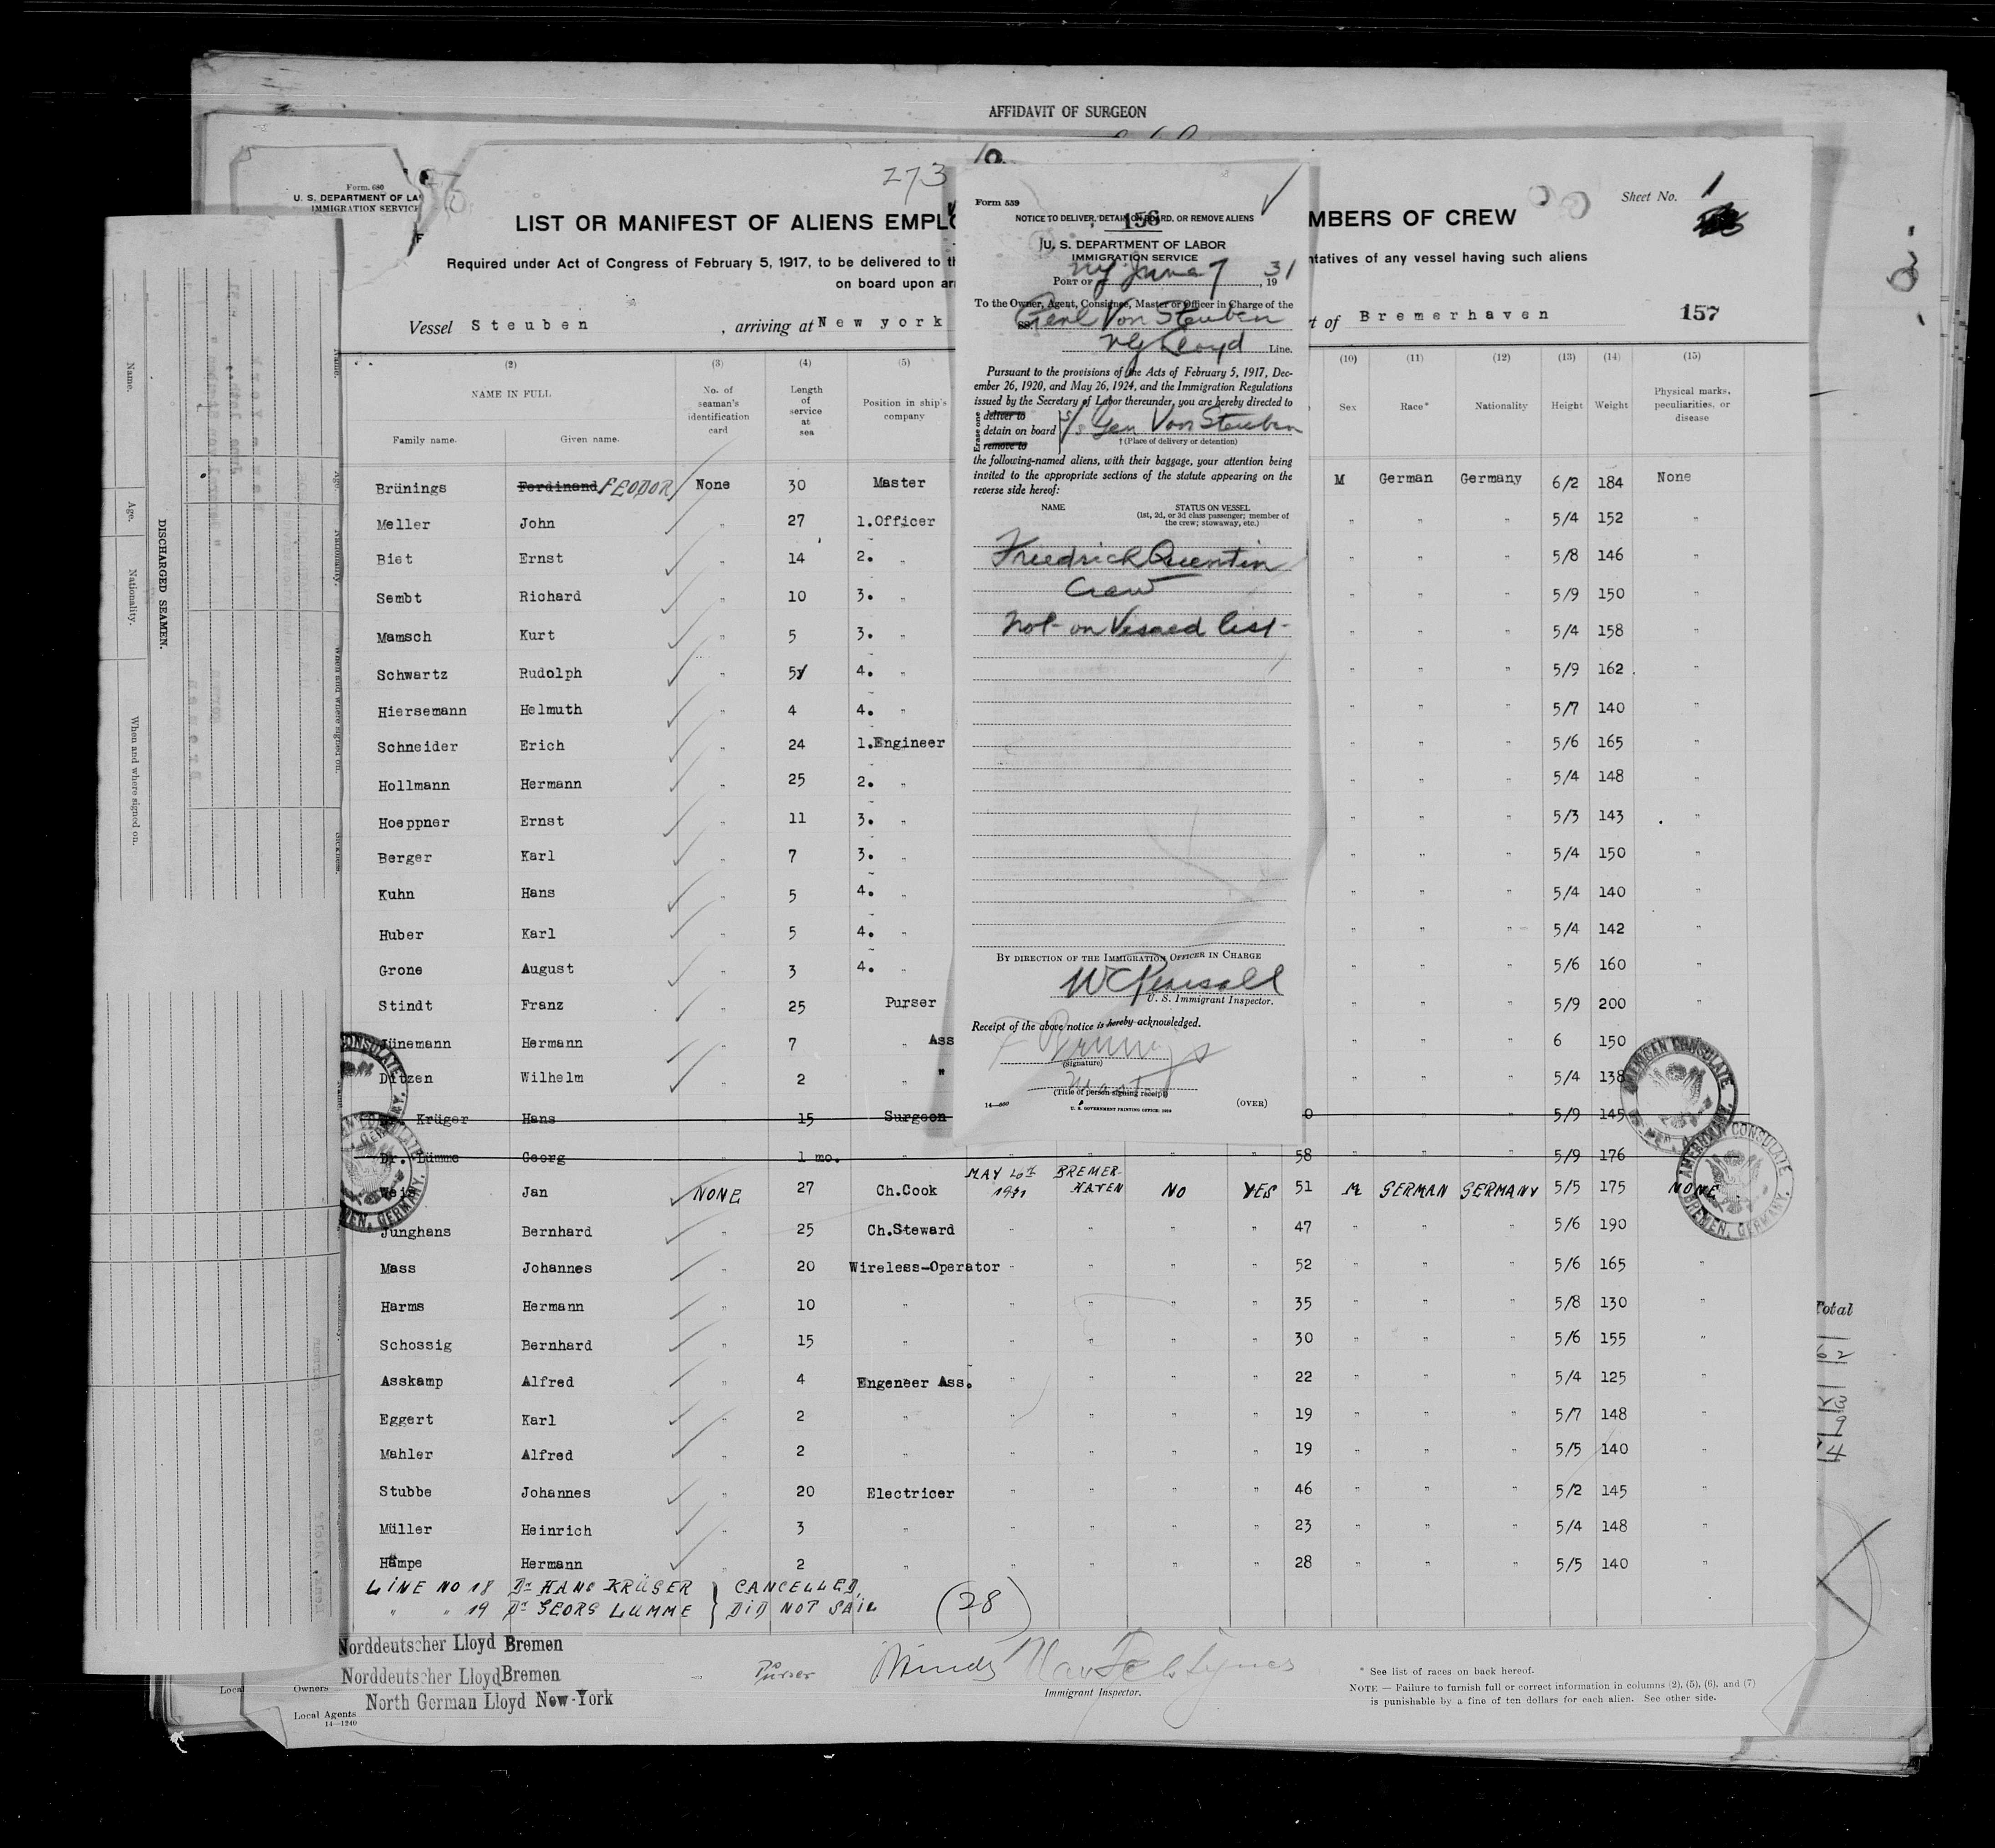 AFFIDAVIT OF SURGEON
Form 680
U. S. DEPARTMENT OF LA
IMMIGRATION SERVICE
273
LIST OR MANIFEST OF ALIENS EMPLO
MBERS OF CREW
Sheet No. 1
Required under Act of Congress of February 5, 1917, to be delivered to th
ntatives of any vessel having such aliens
on board upon arr
Vessel Steuben , arriving at New york
t of Bremerhaven
157
(2) (3) (4) (5) (10) (11) (12) (13) (14) (15)
NAME IN FULL
Family name. Given name.
No. of seaman's identification card
Length of service at sea
Position in ship's company
Sex Race* Nationality Height Weight
Physical marks, peculiarities, or disease
Brünings Ferdinand FEODOR None 30 Master M German Germany 6/2 184 None
Meller John " 27 1.Officer " " " 5/4 152 "
Biet Ernst " 14 2. " " " " 5/8 146 "
Sembt Richard " 10 3. " " " " 5/9 150 "
Mamsch Kurt " 5 3. " " " " 5/4 158 "
Schwartz Rudolph " 5 4. " " " " 5/9 162 "
Hiersemann Helmuth " 4 4. " " " " 5/7 140 "
Schneider Erich " 24 1.Engineer " " " 5/6 165 "
Hollmann Hermann " 25 2. " " " " 5/4 148 "
Hoeppner Ernst " 11 3. " " " " 5/3 143 "
Berger Karl " 7 3. " " " " 5/4 150 "
Kuhn Hans " 5 4. " " " " 5/4 140 "
Huber Karl " 5 4. " " " " 5/4 142 "
Grone August " 3 4. " " " " 5/6 160 "
Stindt Franz " 25 Purser " " " 5/9 200 "
Jünemann Hermann " 7 " Ass " " " 6 150
Ditzen Wilhelm " 2 " " " " " 5/4 138
Krüger Hans 15 Surgeon 0 " " " 5/9 145
Dr. Lümme Georg 1 mo. " " " " " 58 " " " 5/9 176
Jan NONE 27 Ch.Cook MAY 20th 1931 BREMER-HAVEN NO YES 51 M GERMAN GERMANY 5/5 175 NONE
Junghans Bernhard " 25 Ch.Steward " " " " 47 " " " 5/6 190
Mass Johannes " 20 Wireless-Operator " " " " 52 " " " 5/6 165 "
Harms Hermann " 10 " " " " " 35 " " " 5/8 130 "
Schossig Bernhard " 15 " " " " " 30 " " " 5/6 155 "
Asskamp Alfred " 4 Engeneer Ass. " " " " 22 " " " 5/4 125 "
Eggert Karl " 2 " " " " " 19 " " " 5/7 148 "
Mahler Alfred " 2 " " " " " 19 " " " 5/5 140 "
Stubbe Johannes " 20 Electricer " " " " 46 " " " 5/2 145 "
Müller Heinrich " 3 " " " " " 23 " " " 5/4 148 "
Hampe Hermann " 2 " " " " " 28 " " " 5/5 140 "
LINE NO 18 Dr HANS KRÜGER } CANCELLED,
" " 19 Dr GEORG LUMME } DID NOT SAIL
(28)
Norddeutscher Lloyd Bremen
Norddeutscher Lloyd Bremen
North German Lloyd New-York
Local
Owners
Local Agents
14—1240
Purser
Immigrant Inspector.
* See list of races on back hereof.
NOTE — Failure to furnish full or correct information in columns (2), (5), (6), and (7)
is punishable by a fine of ten dollars for each alien. See other side.
10
Form 539
NOTICE TO DELIVER, DETAIN ON BOARD, OR REMOVE ALIENS
156
U. S. DEPARTMENT OF LABOR
IMMIGRATION SERVICE
PORT OF NY June 7, 1931
To the Owner, Agent, Consignee, Master or Officer in Charge of the
SS Genl Von Steuben
NG Lloyd Line.
Pursuant to the provisions of the Acts of February 5, 1917, Dec-
ember 26, 1920, and May 26, 1924, and the Immigration Regulations
issued by the Secretary of Labor thereunder, you are hereby directed to
Erase one
deliver to
detain on board S/s Gen Von Steuben
remove to
† (Place of delivery or detention)
the following-named aliens, with their baggage, your attention being
invited to the appropriate sections of the statute appearing on the
reverse side hereof:
NAME
STATUS ON VESSEL
(1st, 2d, or 3d class passenger; member of
the crew; stowaway, etc.)
Friedrick Quentin
Crew
Not on Vessel list
BY DIRECTION OF THE IMMIGRATION OFFICER IN CHARGE
U. S. Immigrant Inspector.
Receipt of the above notice is hereby acknowledged.
F Brünings
(signature)
Master
(Title of person signing receipt)
U. S. GOVERNMENT PRINTING OFFICE: 1929
(OVER)
AMERICAN CONSULATE
BREMEN, GERMANY.
AMERICAN CONSULATE
BREMEN, GERMANY.
DISCHARGED SEAMEN.
Name.
Age.
Nationality.
When and where signed on.
Total
62